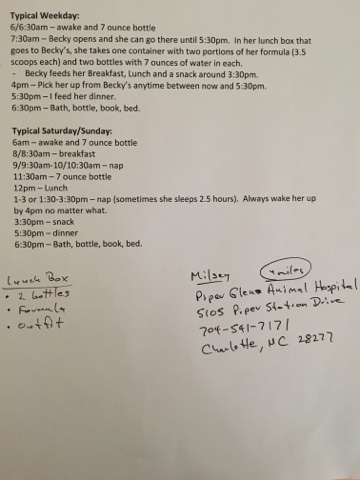 Typical Weekday:
6/6:30am – awake and 7 ounce bottle
7:30am – Becky opens and she can go there until 5:30pm. In her lunch box that
goes to Becky's, she takes one container with two portions of her formula (3.5
scoops each) and two bottles with 7 ounces of water in each.
- Becky feeds her Breakfast, Lunch and a snack around 3:30pm.
4pm – Pick her up from Becky's anytime between now and 5:30pm.
5:30pm – I feed her dinner.
6:30pm – Bath, bottle, book, bed.
Typical Saturday/Sunday:
6am – awake and 7 ounce bottle
8/8:30am – breakfast
9/9:30am-10/10:30am – nap
11:30am – 7 ounce bottle
12pm – Lunch
1-3 or 1:30-3:30pm – nap (sometimes she sleeps 2.5 hours). Always wake her up
by 4pm no matter what.
3:30pm – snack
5:30pm – dinner
6:30pm – Bath, bottle, book, bed.
Lunch Box
• 2 bottles
• Formula
• outfit
Milsey 4 miles
Piper Glen Animal Hospital
5105 Piper Station Drive
704-541-7171
Charlotte, NC 28277